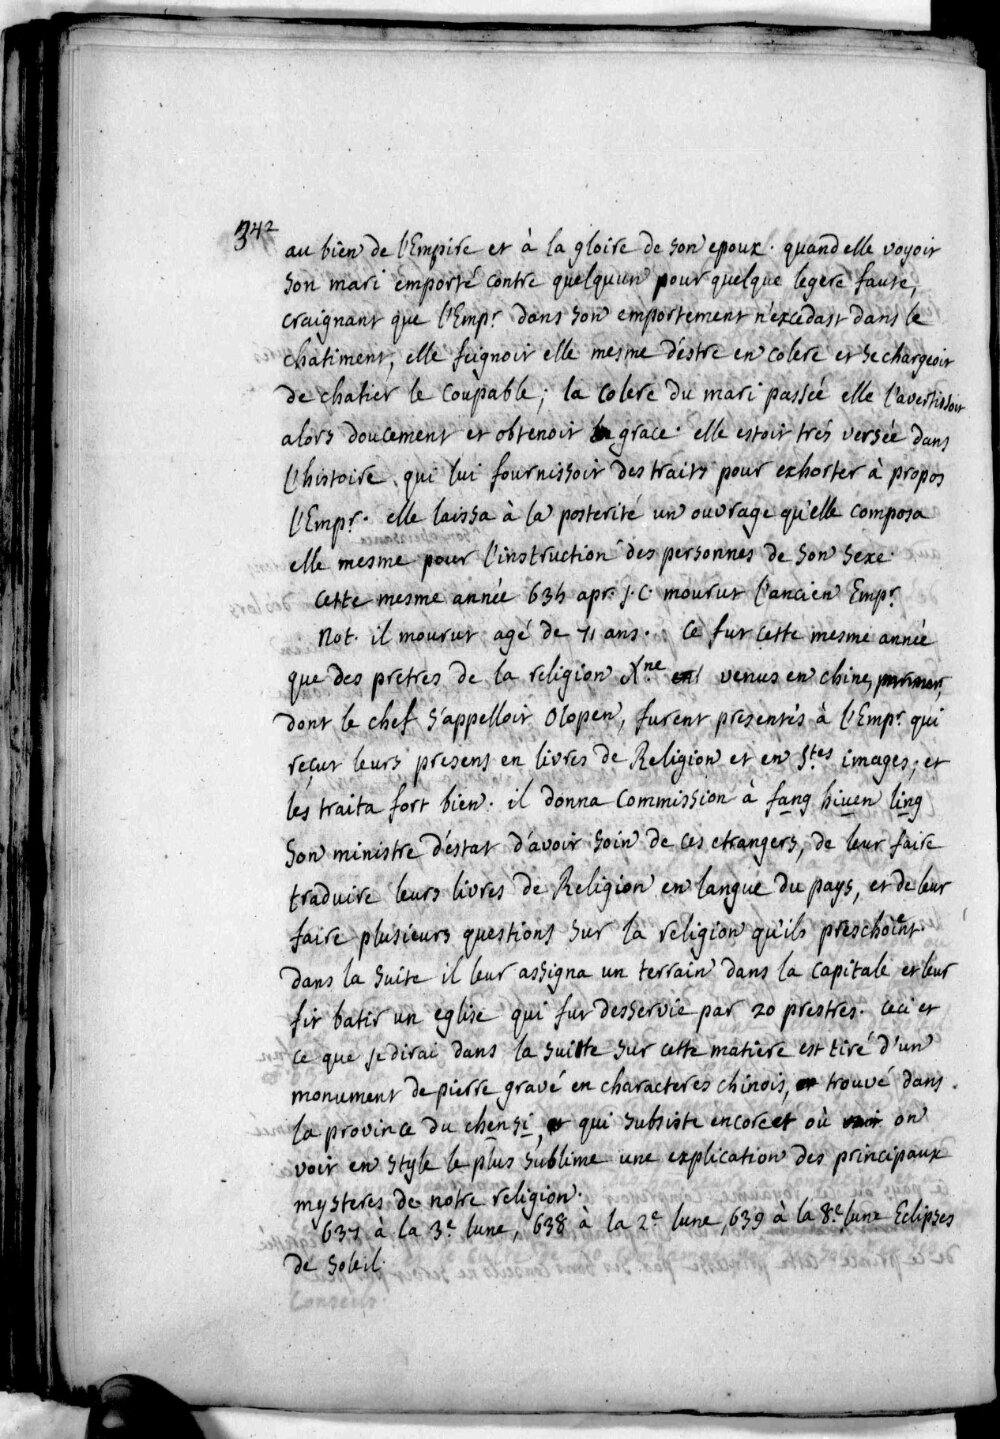 342
au bien de l'Empire et à la gloire de son epoux. quand elle voyoit
son mari emporté contre quelqu'un pour quelque legere faute,
craignant que l'Empr. dans son emportement n'excedast dans le
chatiment, elle feignoit elle mesme d'estre en colere et se chargeoit
de chatier le coupable; la colere du mari passée elle l'avertissoit
alors doucement et obtenoit la grace. elle estoit trés versée dans
l'histoire qui lui fournissoit des traits pour exhorter à propos
l'Empr. elle laissa à la posterité un ouvrage qu'elle composa
elle mesme pour l'instruction des personnes de son sexe.
Cette mesme année 635 apr. J.C. mourut l'ancien Empr.
Not. il mourut agé de 71 ans. Ce fut cette mesme année
que des pretres de la religion Xne venus en chine,
dont le chef s'appelloit Olopen, furent presentés à l'Empr. qui
reçut leurs presens en livres de Religion et en Stes images; et
les traita fort bien. il donna commission à fang hiuen ling
son ministre d'éstat d'avoir soin de ces etrangers, de leur faire
traduire leurs livres de Religion en langue du pays, et de leur
faire plusieurs questions sur la religion qu'ils preschoient.
dans la suite il leur assigna un terrain dans la capitale et leur
fit batir un eglise qui fut desservie par 20 prestres. Ceci et
ce que je dirai dans la suitte sur cette matiere est tiré d'un
monument de pierre gravé en characteres chinois, trouvé dans
la province du chensi, qui subsiste encore et où on
voit en style le plus sublime une explication des principaux
mysteres de notre religion.
637 à la 3e lune, 638 à la 2e lune, 639 à la 8e lune Eclipses
de Soleil.